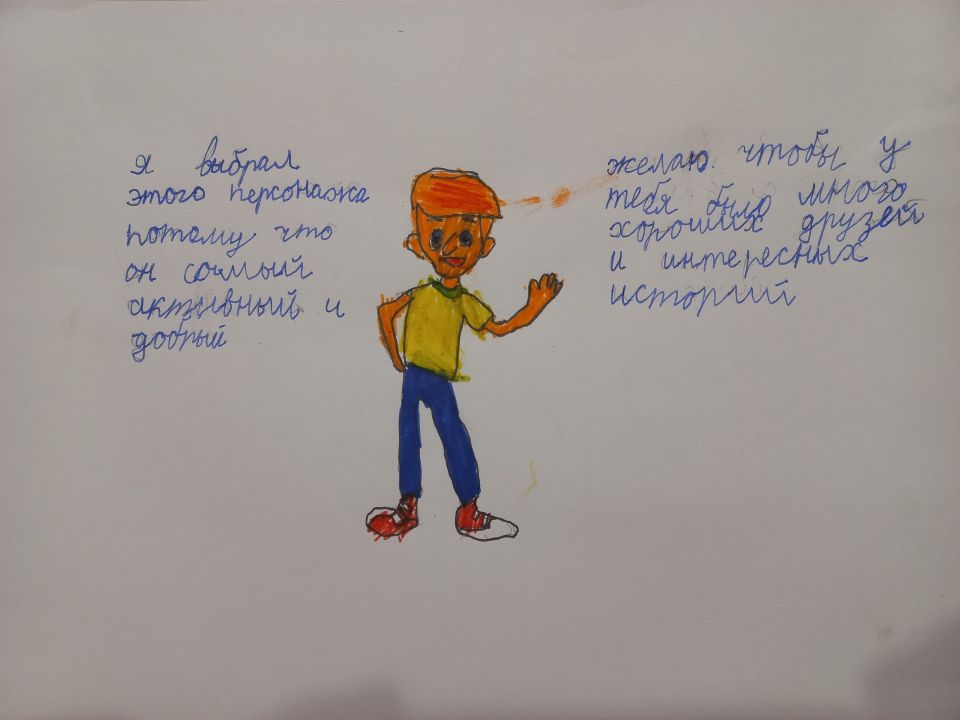 я выбрал
этого персонажа
потому что
он самый
активный и
добрый
желаю чтобы у
тебя было много
хороших друзей
и интересных
историй